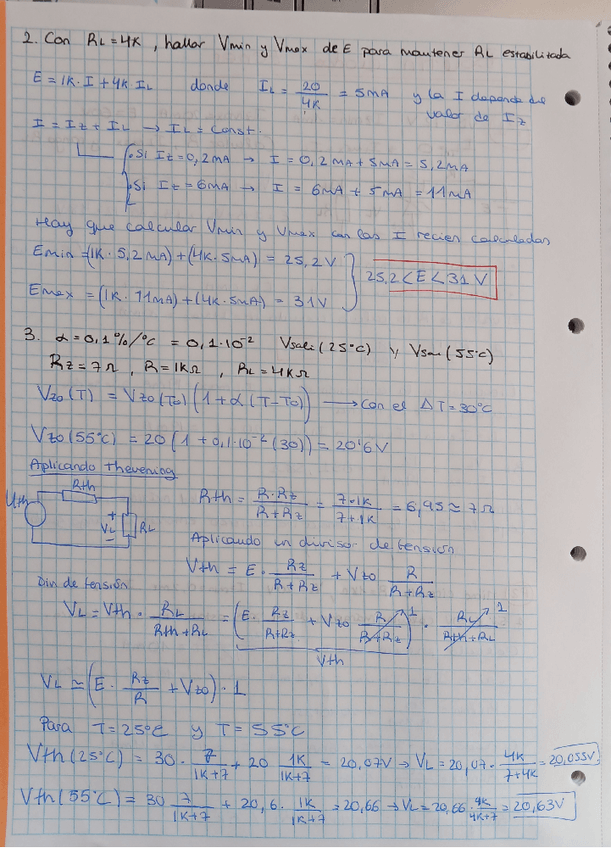 2. Con RL=4K, hallar Vmin y Vmax de E para mantener RL estabilizada
E = 1K·I + 4K IL donde IL = 20/4K = 5mA y la I depende del valor de Iz
I = Iz + IL → IL = const.
Si Iz=0,2mA → I = 0,2mA+5mA = 5,2mA
Si Iz=6mA → I = 6mA + 5mA = 11mA
Hay que calcular Vmin y Vmax con las I recien calculadas
Emin = (1K·5,2mA)+(4K·5mA) = 25,2V
Emax = (1K·11mA)+(4K·5mA) = 31V
25,2<E<31V
3. α=0,1%/°C = 0,1·10⁻² Vsali(25°C) y Vsali(55°C)
Rz=7Ω, R=1KΩ, RL=4KΩ
Vzo(T) = Vzo(To)(1+α(T-To)) → Con el ΔT=30°C
Vzo(55°C) = 20(1+0,1·10⁻²(30)) = 20'6V
Aplicando thevening
Rth
Uth
+
VL
-
RL
Rth = R·Rz/R+Rz = 7·1K/7+1K = 6,95 ≈ 7Ω
Aplicando un divisor de tensión
Vth = E·Rz/R+Rz + Vzo R/R+Rz
Div de tensión
VL = Vth·RL/Rth+RL = (E·Rz/R+Rz + Vzo R/R+Rz)¹·RL/Rth+RL 1
Vth
VL ≃ (E·Rz/R + Vzo)·1
Para T=25°C y T=55°C
Vth(25°C) = 30·7/1K+7 + 20 1K/1K+7 = 20,07V → VL = 20,07·4K/7+4K = 20,055V
Vth(55°C) = 30 7/1K+7 + 20,6·1K/1K+7 = 20,66 → VL = 20,66·4K/4K+7 = 20,63V